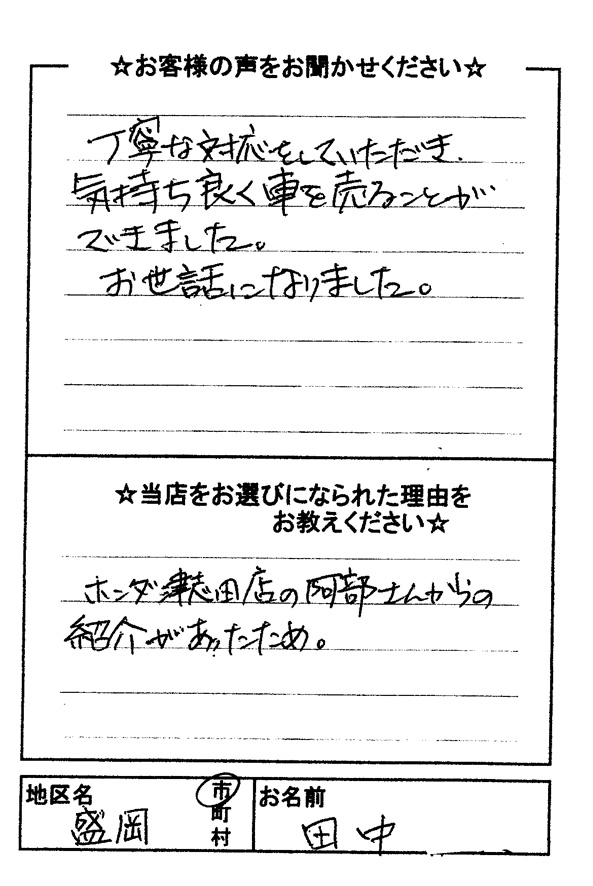 ☆お客様の声をお聞かせください☆
丁寧な対応をしていただき、
気持ち良く車を売ることが
できました。
お世話になりました。
☆当店をお選びになられた理由を
お教えください☆
ホンダ津志田店の阿部さんからの
紹介があったため。
地区名
盛岡
市
町
村
お名前
田中